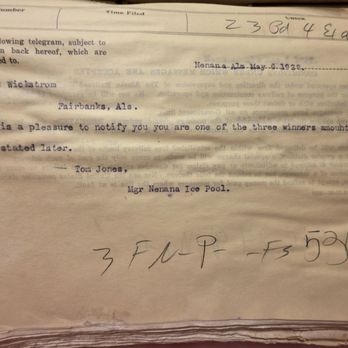 umber
Time Filed
Check
2 3 Bd 4
lowing telegram, subject to
n back hereof, which are
ed to.
Nenana Als May 6.1938.
Wickstrom
Fairbanks, Als.
is a pleasure to notify you you are one of the three winners amount
stated later.
Tom Jones,
Mgr Nenana Ice Pool.
3 F N - P - - Fs 52